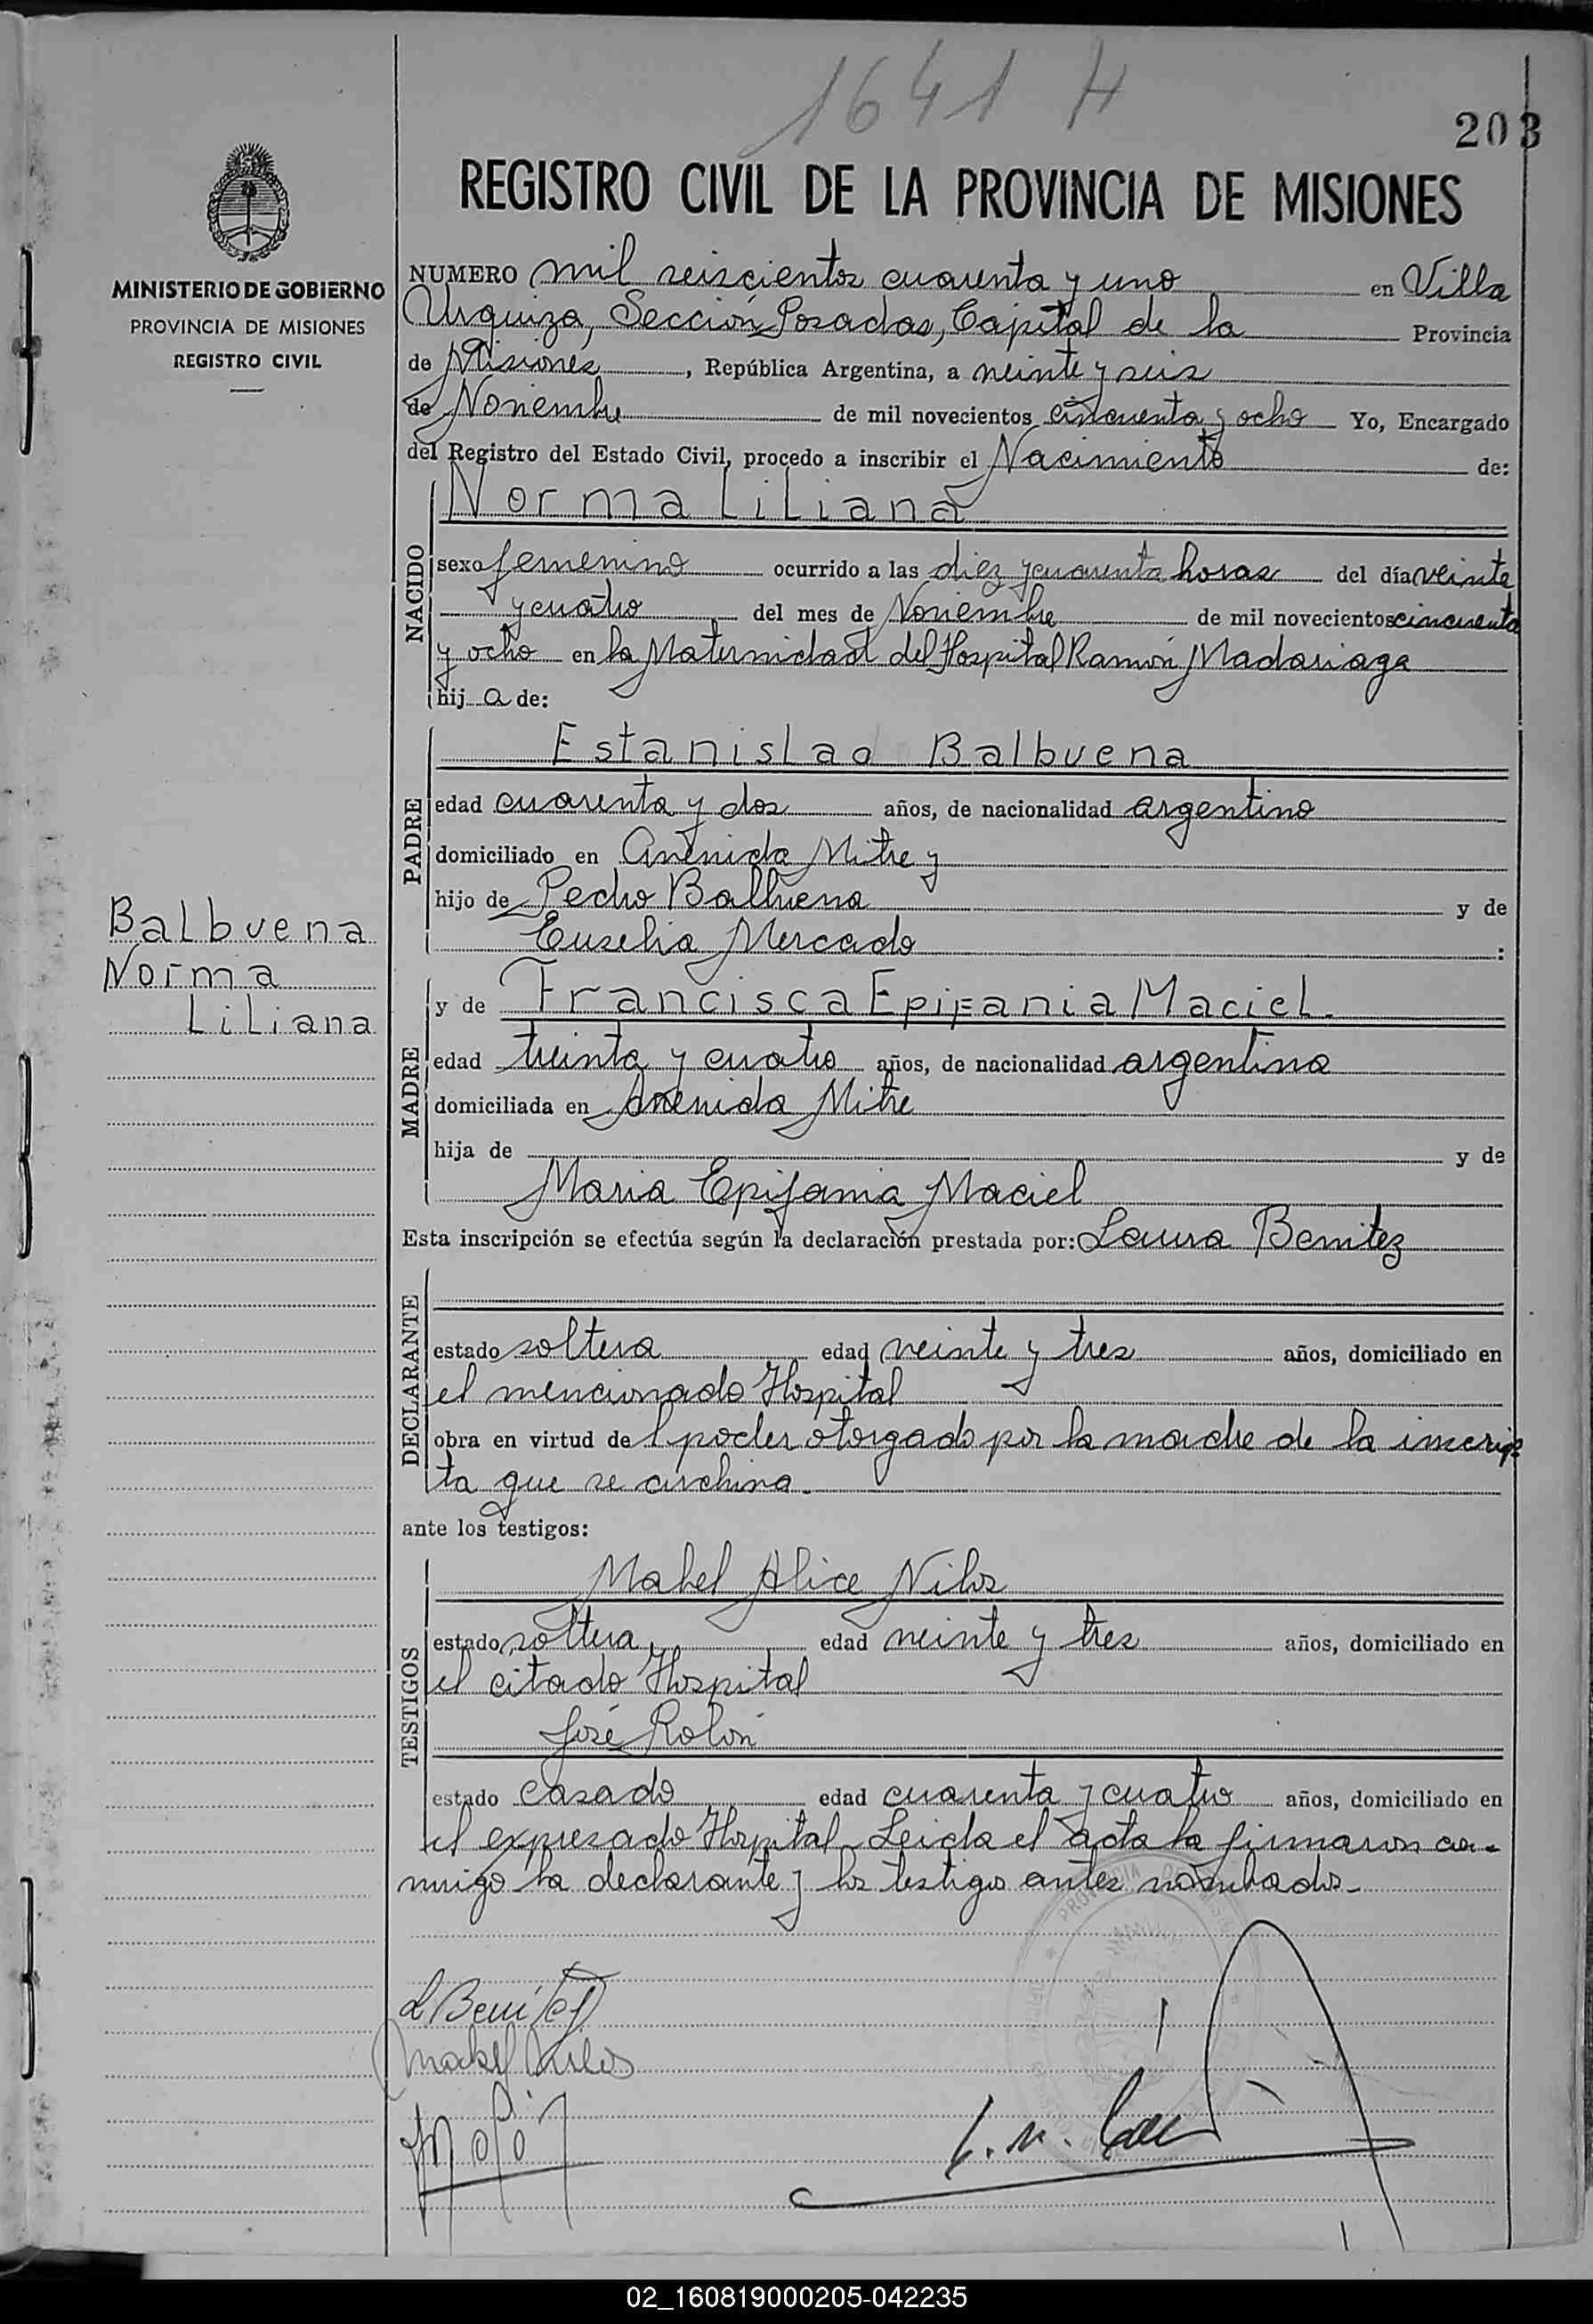 1641 H
203
REGISTRO CIVIL DE LA PROVINCIA DE MISIONES
MINISTERIO DE GOBIERNO
PROVINCIA DE MISIONES
REGISTRO CIVIL
NUMERO mil seiscientos cuarenta y uno en Villa
Urquiza, Sección Posadas, Capital de la Provincia
de Misiones, República Argentina, a veinte y seis
de Noviembre de mil novecientos cincuenta y ocho Yo, Encargado
del Registro del Estado Civil, procedo a inscribir el Nacimiento de:
NACIDO
Norma Liliana
sexo femenino ocurrido a las diez y cuarenta horas del día veinte
y cuatro del mes de Noviembre de mil novecientos cincuenta
y ocho en la Maternidad del Hospital Ramón Madariaga
hij a de:
PADRE
Estanislao Balbuena
edad cuarenta y dos años, de nacionalidad argentino
domiciliado en Avenida Mitre y
hijo de Pedro Balbuena y de
Eusebia Mercado :
Balbuena
Norma
Liliana
MADRE
y de Francisca Epifania Maciel.
edad treinta y cuatro años, de nacionalidad argentina
domiciliada en Avenida Mitre
hija de y de
Maria Epifania Maciel
Esta inscripción se efectúa según la declaración prestada por: Laura Benitez
DECLARANTE
estado soltera edad veinte y tres años, domiciliado en
el mencionado Hospital
obra en virtud del poder otorgado por la madre de la inscrip
ta que se archiva.
ante los testigos:
TESTIGOS
Mabel Alice Nilos
estado soltera, edad veinte y tres años, domiciliado en
el citado Hospital
José Rolón
estado casado edad cuarenta y cuatro años, domiciliado en
el expresado Hospital. Leida el acta la firmaron con-
migo la declarante y los testigos antes nombrados.
PROVINCIA DE
L Benítez
Mabel Nilos
02_160819000205-042235